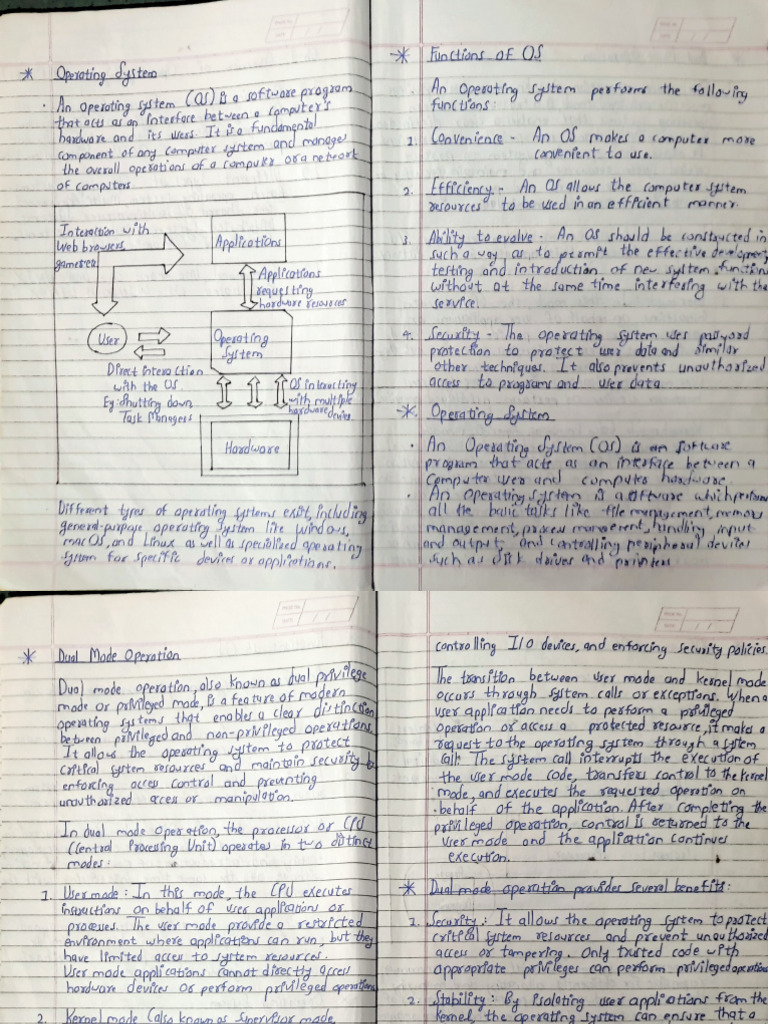 * Operating System
• An operating system (OS) is a software program
that acts as an interface between a computer's
hardware and its users. It is a fundamental
component of any computer system and manages
the overall operations of a computer or a network
of computers
Interaction with
Web browsers
games etc
Applications
Applications
requesting
hardware resources
User
Operating
System
Direct Interaction
with the OS.
Eg: shutting down
Task Managers
OS interacting
with multiple
hardware device
Hardware
Different types of operating systems exist, including
general-purpose operating system like windows,
macOS, and Linux as well as specialized operating
system for specific devices or applications.
* Functions of OS
• An operating system performs the following
functions:
1. Convenience - An OS makes a computer more
convenient to use.
2. Efficiency - An OS allows the computer system
resources to be used in an efficient manner.
3. Ability to evolve - An OS should be constructed in
such a way as to permit the effective development,
testing and introduction of new system functions
without at the same time interfering with the
service.
4. Security - The operating system uses password
protection to protect user data and similar
other techniques. It also prevents unauthorized
access to programs and user data.
* Operating System
• An Operating System (OS) is an software
program that acts as an interface between a
computer user and computer hardware.
• An operating system is a software which performs
all the basic talks like file management, memory
management, process management, handling input
and output, and controlling peripheral devices
such as disk drives and printers
* Dual Mode Operation
Dual mode operation, also known as dual privilege
mode or privileged mode, is a feature of modern
operating systems that enables a clear distinction
between privileged and non-privileged operations.
It allows the operating system to protect
critical system resources and maintain security by
enforcing access control and preventing
unauthorized access or manipulation.
In dual mode operation, the processor or CPU
(Central Processing Unit) operates in two distinct
modes:
1. User mode: In this mode, the CPU executes
instructions on behalf of user applications or
processes. The user mode provide a restricted
environment where applications can run, but they
have limited access to system resources.
User mode applications cannot directly access
hardware devices or perform privileged operations
2. Kernel mode (also known as supervisor mode
controlling I/O devices, and enforcing security policies.
The transition between user mode and kernel mode
occurs through system calls or exceptions. When a
user application needs to perform a privileged
operation or access a protected resource, it makes a
request to the operating system through a system
call. The system call interrupts the execution of
the user mode code, transfers control to the kernel
mode, and executes the requested operation on
behalf of the application. After completing the
privileged operation, control is returned to the
user mode and the application continues
execution.
* Dual mode operation provides several benefits:
1. Security: It allows the operating system to protect
critical system resources and prevent unauthorized
access or tampering. Only trusted code with
appropriate privileges can perform privileged operations
2. Stability: By isolating user applications from the
kernel, the operating system can ensure that a